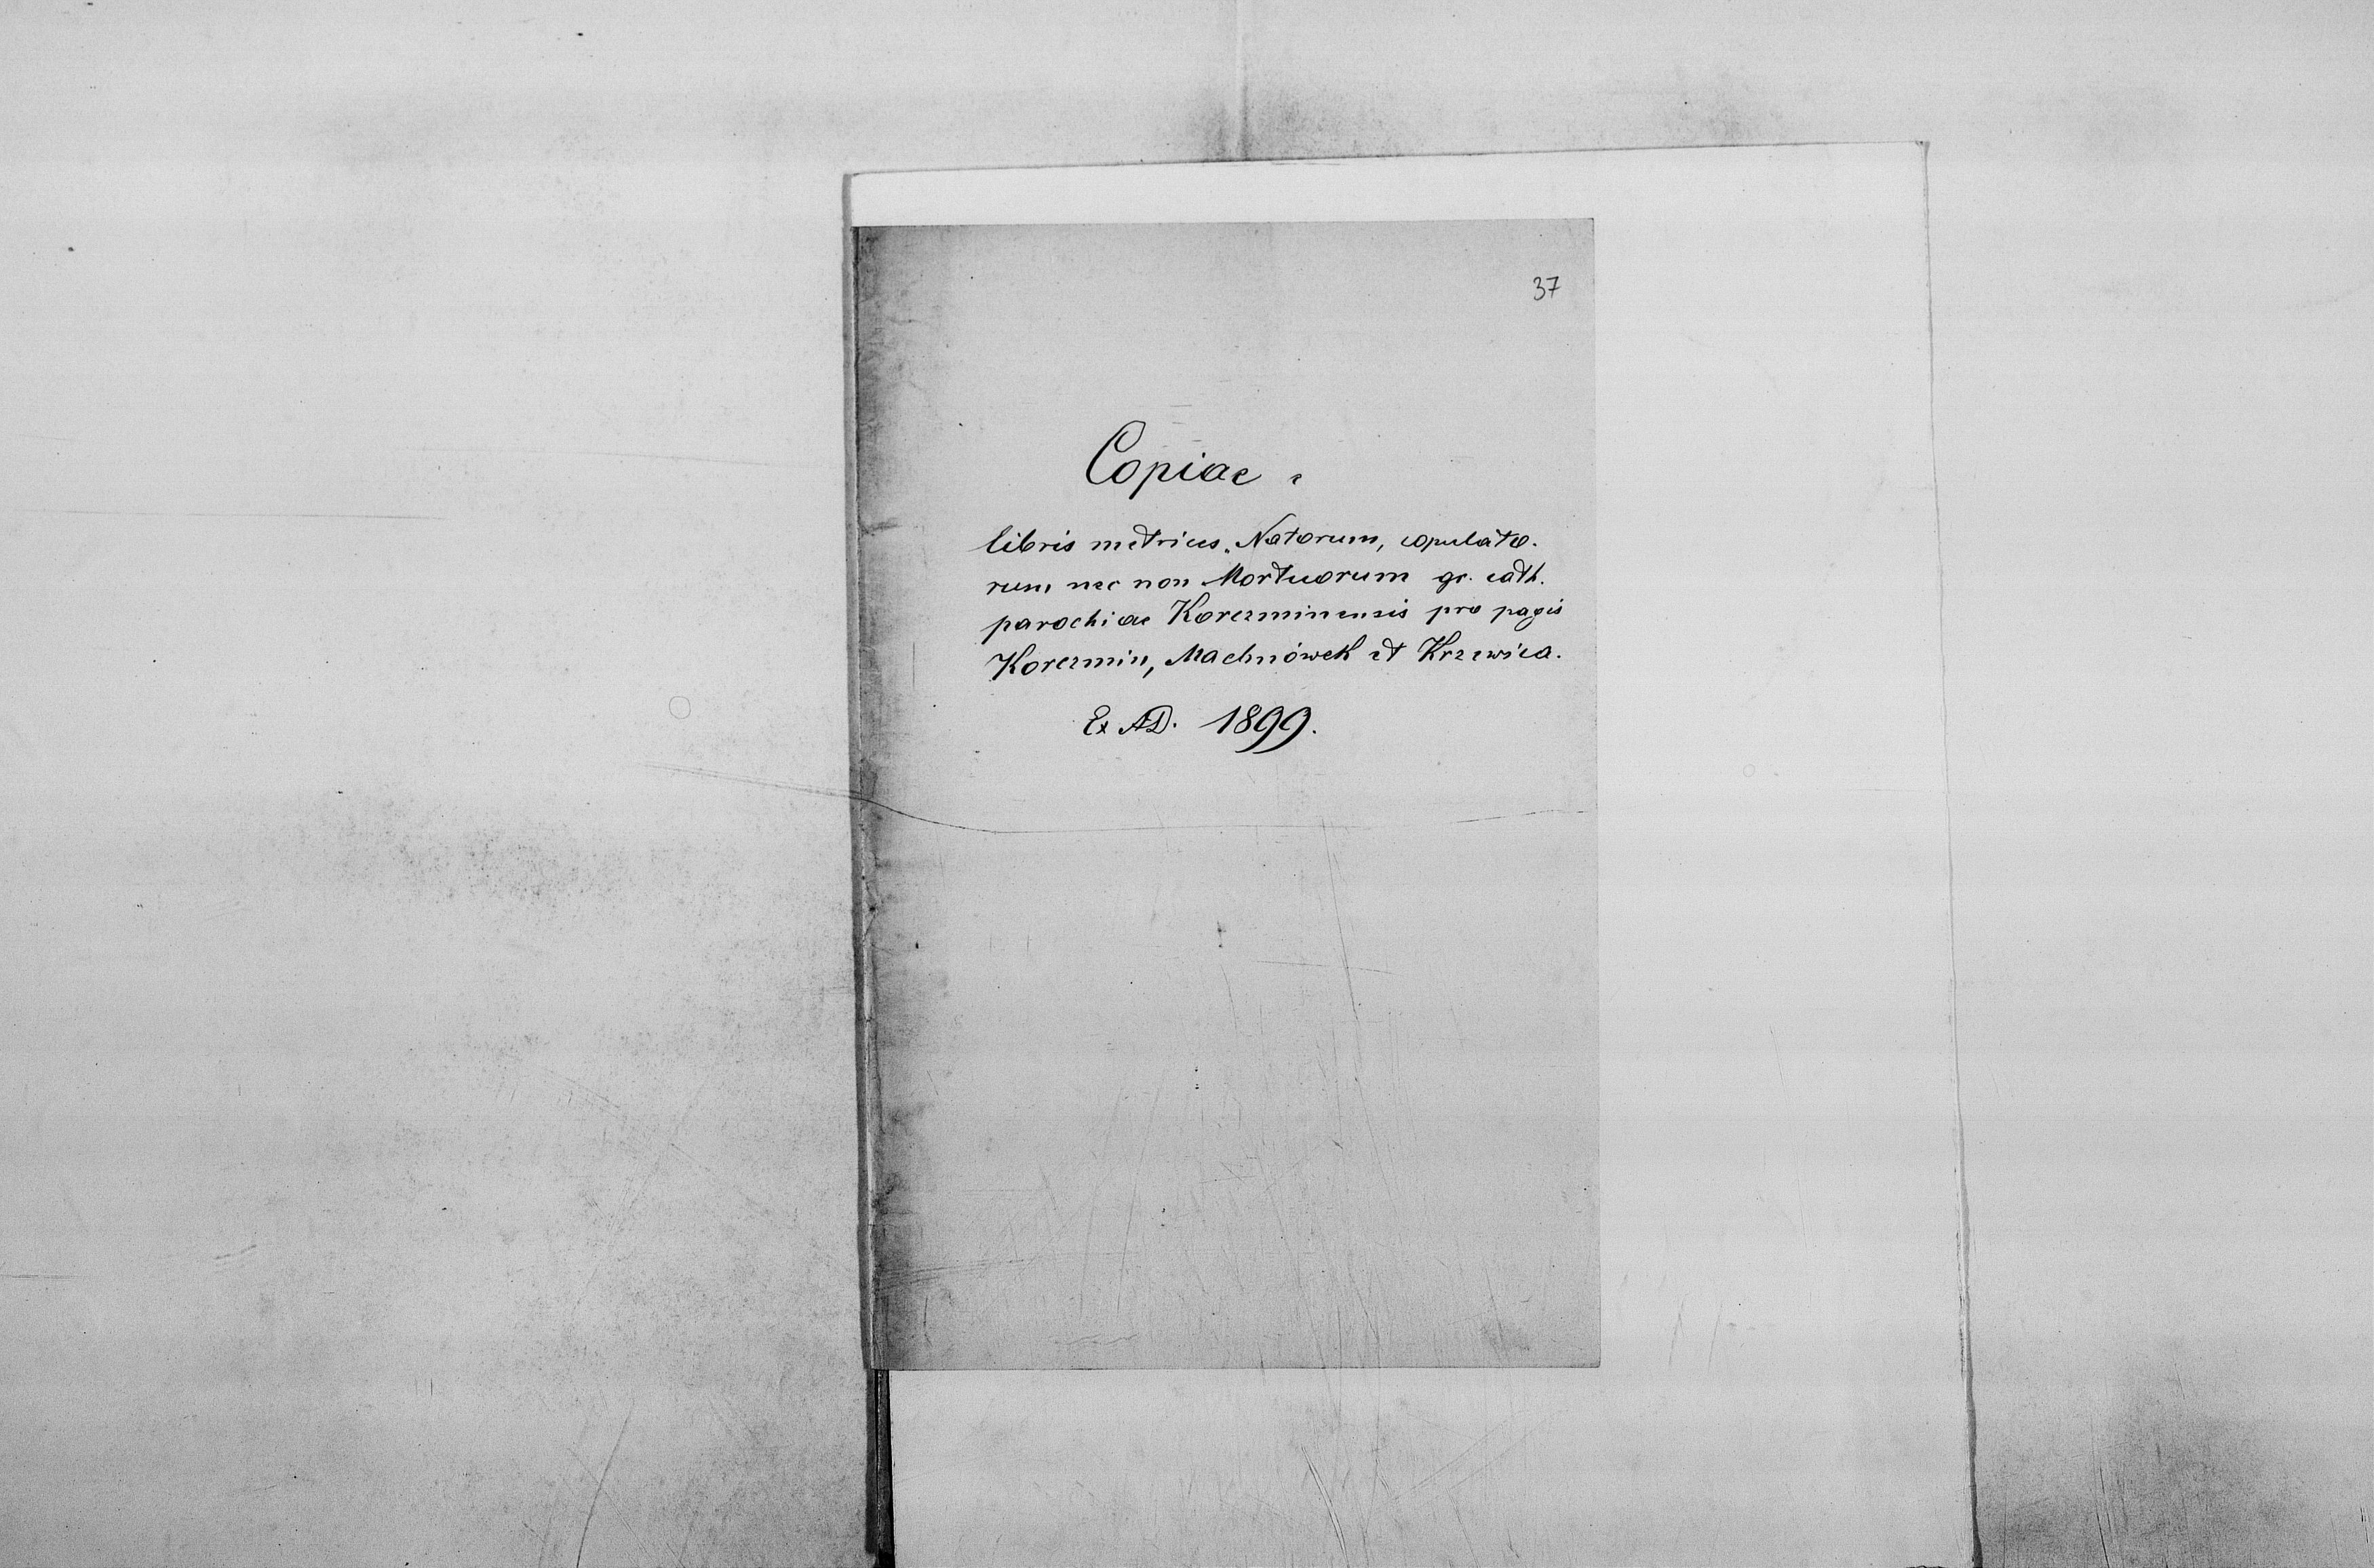 37
Copiae e
libris metrices. Natorum, copulato.
rum nec non Mortuorum gr. cath.
parochiae Korczminensis pro pagis
Korczmin, Machnówek et Krzewica.
Ex A.D. 1899.